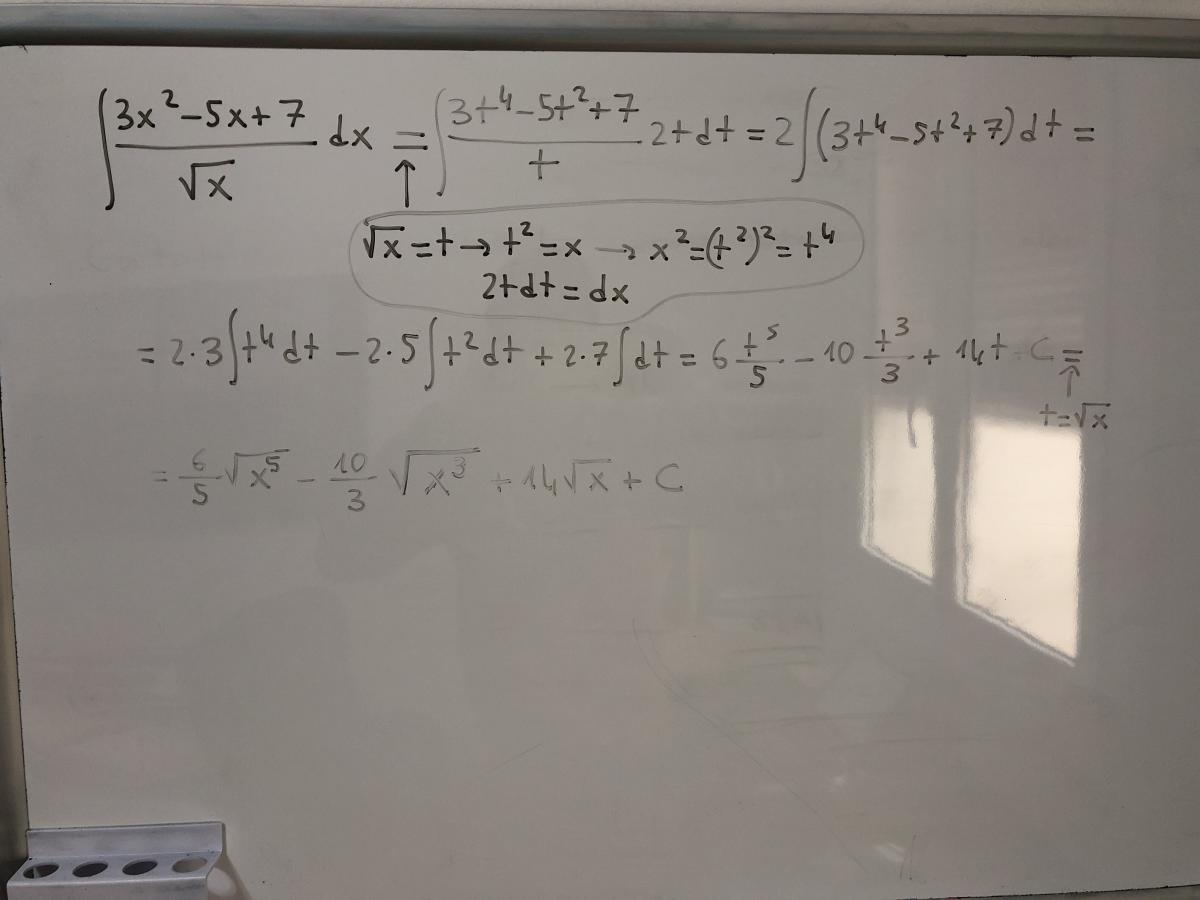 ∫ (3x² − 5x + 7)/√x dx = ∫ (3t⁴ − 5t² + 7)/t 2t dt = 2∫(3t⁴ − 5t² + 7)dt =
↑
√x = t → t² = x → x² = (t²)² = t⁴
2t dt = dx
= 2·3∫t⁴dt − 2·5∫t²dt + 2·7∫dt = 6 t⁵/5 − 10 t³/3 + 14t C =
↑
t = √x
= 6/5 √x⁵ − 10/3 √x³ + 14√x + C